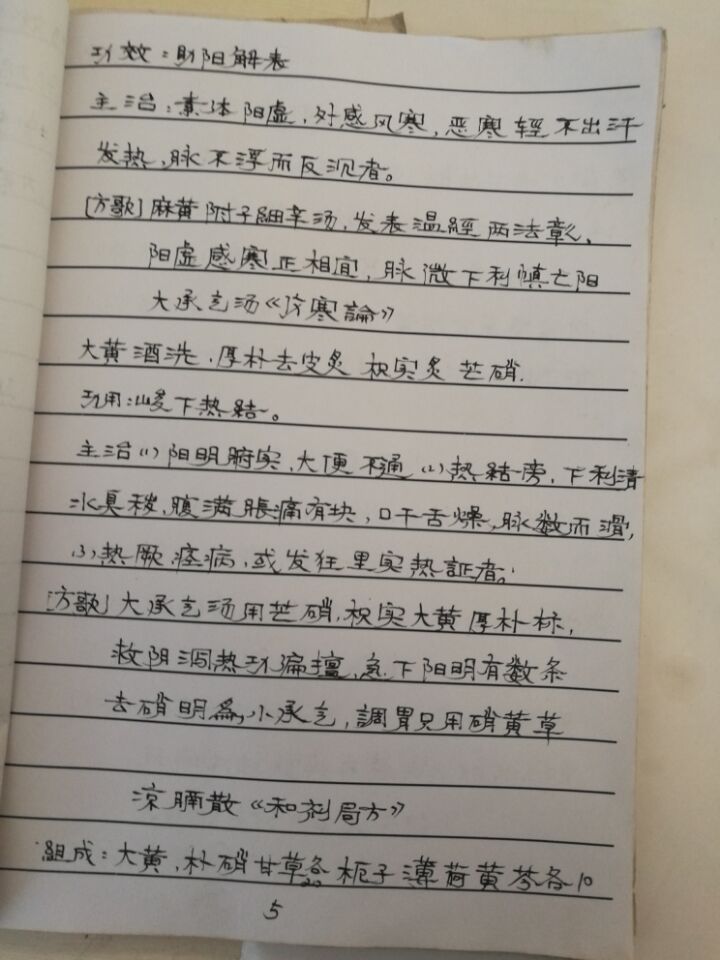 功效：助阳解表
主治：素体阳虚，外感风寒，恶寒輕不出汗
发热，脉不浮而反沉者。
[方歌]麻黄附子細辛汤，发表温經两法彰，
阳虚感寒正相宜，脉微下利慎亡阳
大承气汤《伤寒論》
大黄酒洗，厚朴去皮炙 枳实炙 芒硝.
功用：峻下热結。
主治(1)阳明腑实，大便不通(2)热結傍，下利清
水臭秽，腹满脹痛有块，口干舌燥，脉数而滑，
(3)热厥，痉病，或发狂里实热証者。
[方歌]大承气汤用芒硝，枳实大黄厚朴标，
救阴泻热功偏擅，急下阳明有数条
去硝明為小承气，調胃只用硝黄草
涼膈散《和剂局方》
組成：大黄，朴硝甘草各20 栀子薄荷黄芩各10
5